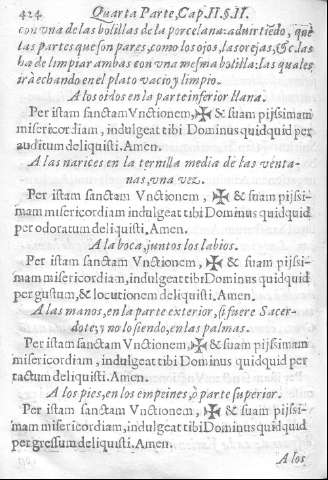 424 Quarta Parte, Cap. II. §. II.
con vna de las bolillas de la porcelana: aduirtiẽdo, que
las partes que son pares, como los ojos, las orejas, &c. las
ha de limpiar ambas con vna mesma bolilla: las quales
irà echando en el plato vacio y limpio.
A los oidos en la parte inferior llana.
Per istam sanctam Vnctionem, ✠ & suam pijssimam
misericordiam, indulgeat tibi Dominus quidquid per
auditum deliquisti. Amen.
A las narices en la ternilla media de las venta-
nas, vna vez.
Per istam sanctam Vnctionem, ✠ & suam pijssi-
mam misericordiam indulgeat tibi Dominus quidquid
per odoratum deliquisti. Amen.
A la boca, juntos los labios.
Per istam sanctam Vnctionem, ✠ & suam pijssi-
mam misericordiam, indulgeat tibi Dominus quidquid
per gustum, & locutionem deliquisti. Amen.
A las manos, en la parte exterior, si fuere Sacer-
dote, y no lo siendo, en las palmas.
Per istam sanctam Vnctionem, ✠ & suam pijssimam
misericordiam, indulgeat tibi Dominus quidquid per
tactum deliquisti. Amen.
A los pies, en los empeines, ò parte superior.
Per istam sanctam Vnctionem, ✠ & suam pijssi-
mam misericordiam, indulgeat tibi Dominus quidquid
per gressum deliquisti. Amen.
A los